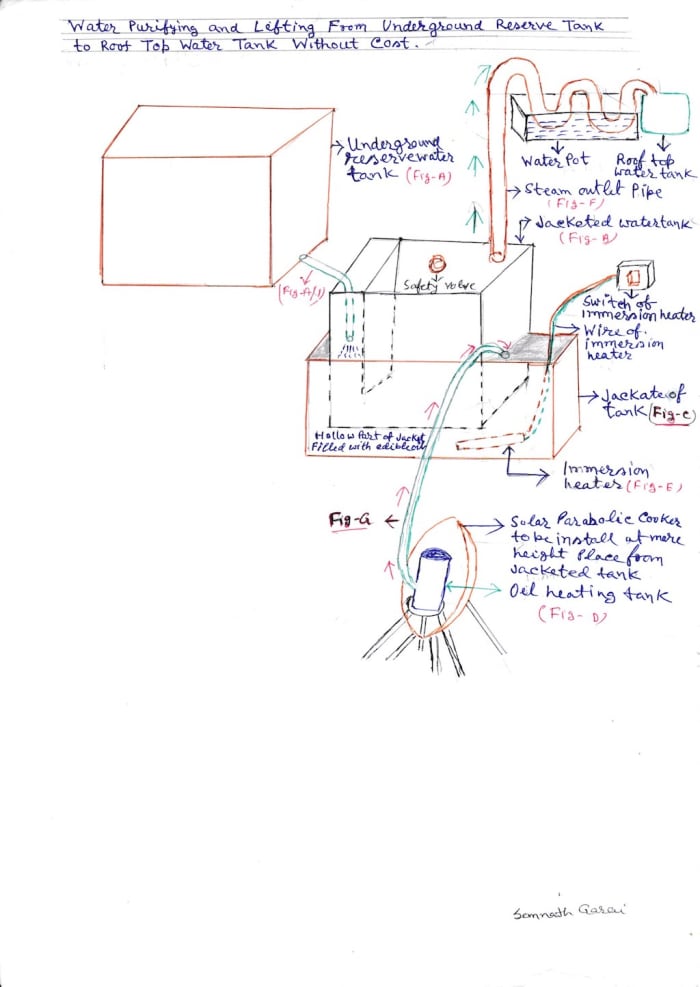 Water Purifying and Lifting From Underground Reserve Tank
to Roof Top Water Tank Without Cost.
Underground
reserve water
tank (Fig-A)
Water Pot
Roof top
water tank
Steam outlet Pipe
(Fig-F)
Jacketed watertank
(Fig-B)
(Fig-A/1)
Safety valve
Switch of
immersion heater
Wire of
immersion
heater
Jackate of
tank (Fig-C)
Hollow Part of Jacket
Filled with edible oil
Immersion
heater (Fig-E)
Fig-G
Solar Parabolic Cooker
to be install at mere
height place from
Jacketed tank
Oil heating tank
(Fig-D)
Somnath Garai